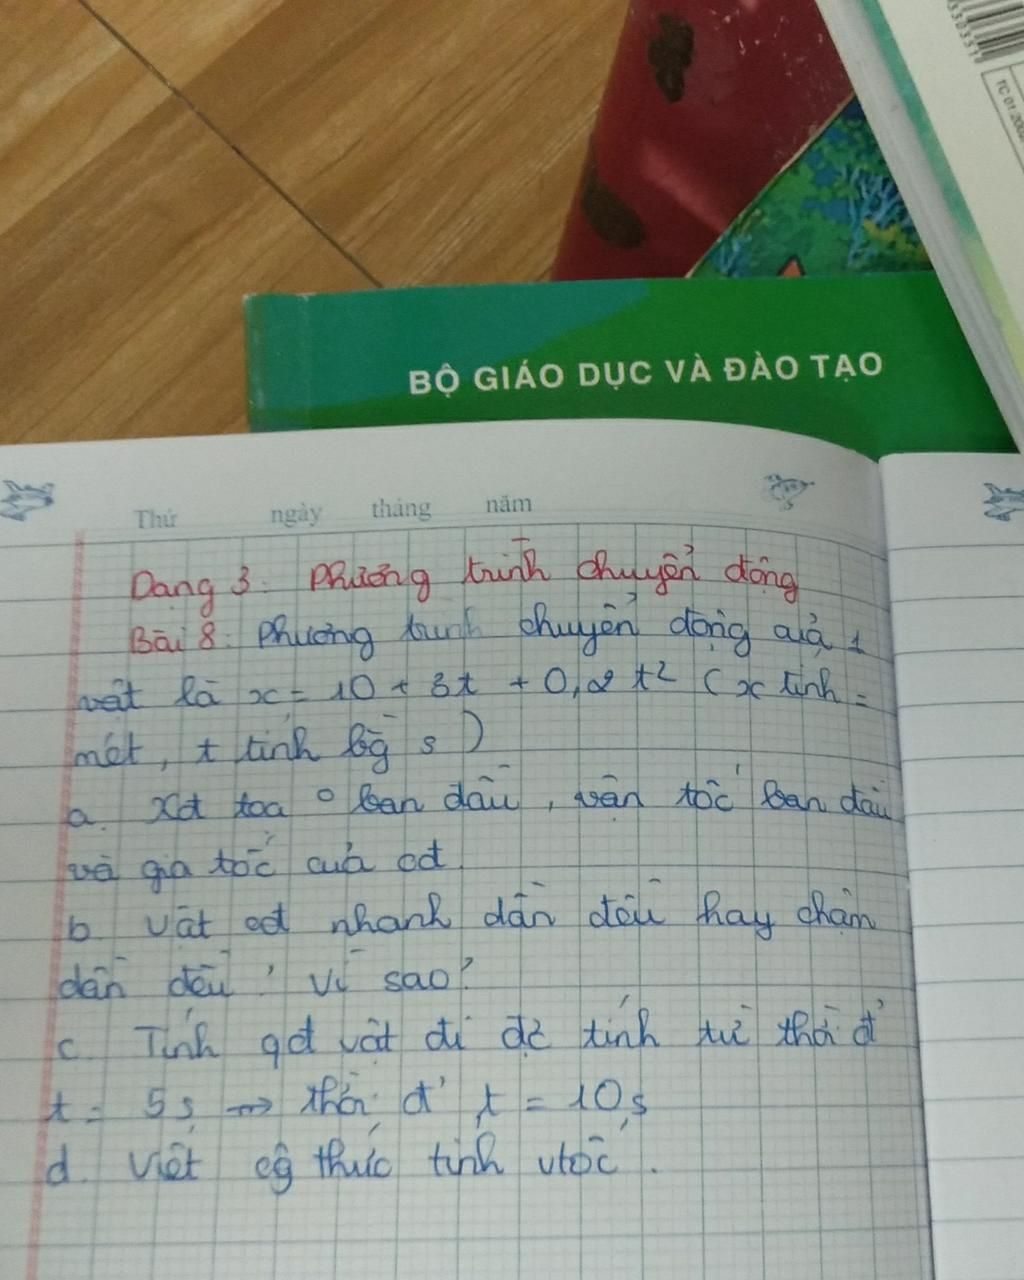 TC 01:2002
BỘ GIÁO DỤC VÀ ĐÀO TẠO
Thứ ngày tháng năm
Dạng 3: Phương trình chuyển động
Bài 8: Phương trình chuyển động của 1
vật là x = 10 + 3t + 0,2 t² ( x tính =
mét, t tính bg s )
a. Xđ toạ ° ban đầu, vận tốc ban đầu
và gia tốc của cđ.
b. Vật cđ nhanh dần đều hay chậm
dần đều ? Vì sao?
c. Tính qđ vật đi đc tính từ thời đ'
t = 5s → thời đ' t = 10s
d. Viết cg thức tính vtốc.